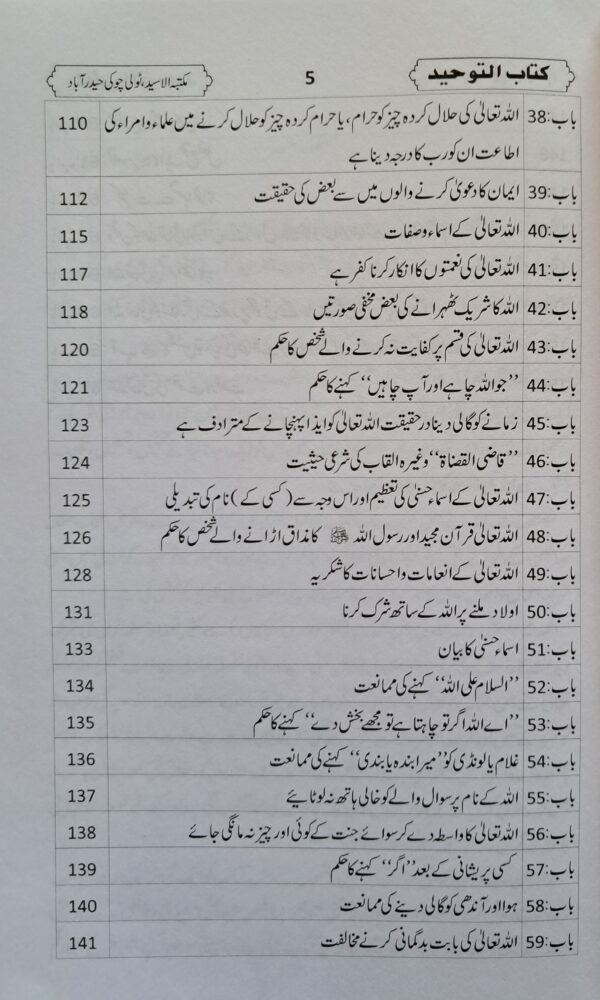 کتاب التوحید 5 مکتبہ الاسید، ٹولی چوکی حیدرآباد
باب:38 اللہ تعالیٰ کی حلال کردہ چیز کو حرام، یا حرام کردہ چیز کو حلال کرنے میں علماء وامراء کی 110
اطاعت ان کو رب کا درجہ دینا ہے
باب:39 ایمان کا دعویٰ کرنے والوں میں سے بعض کی حقیقت 112
باب:40 اللہ تعالیٰ کے اسماء وصفات 115
باب:41 اللہ تعالیٰ کی نعمتوں کا انکار کرنا کفر ہے 117
باب:42 اللہ کا شریک ٹھہرانے کی بعض مخفی صورتیں 118
باب:43 اللہ تعالیٰ کی قسم پر کفایت نہ کرنے والے شخص کا حکم 120
باب:44 ’’جو اللہ چاہے اور آپ چاہیں‘‘ کہنے کا حکم 121
باب:45 زمانے کو گالی دینا درحقیقت اللہ تعالیٰ کو ایذا پہنچانے کے مترادف ہے 123
باب:46 ’’قاضی القضاۃ‘‘ وغیرہ القاب کی شرعی حیثیت 124
باب:47 اللہ تعالیٰ کے اسماء حسنیٰ کی تعظیم اور اس وجہ سے (کسی کے) نام کی تبدیلی 125
باب:48 اللہ تعالیٰ قرآن مجید اور رسول اللہ ﷺ کا مذاق اڑانے والے شخص کا حکم 126
باب:49 اللہ تعالیٰ کے انعامات واحسانات کا شکریہ 128
باب:50 اولاد ملنے پر اللہ کے ساتھ شرک کرنا 131
باب:51 اسماء حسنیٰ کا بیان 133
باب:52 ’’السلام علی اللہ‘‘ کہنے کی ممانعت 134
باب:53 ’’اے اللہ اگر تو چاہتا ہے تو مجھے بخش دے‘‘ کہنے کا حکم 135
باب:54 غلام یا لونڈی کو ’’میرا بندہ یا بندی‘‘ کہنے کی ممانعت 136
باب:55 اللہ کے نام پر سوال والے کو خالی ہاتھ نہ لوٹایئے 137
باب:56 اللہ تعالیٰ کا واسطہ دے کر سوائے جنت کے کوئی اور چیز نہ مانگی جائے 138
باب:57 کسی پریشانی کے بعد ’’اگر‘‘ کہنے کا حکم 139
باب:58 ہوا اور آندھی کو گالی دینے کی ممانعت 140
باب:59 اللہ تعالیٰ کی بابت بدگمانی کرنے مخالفت 141